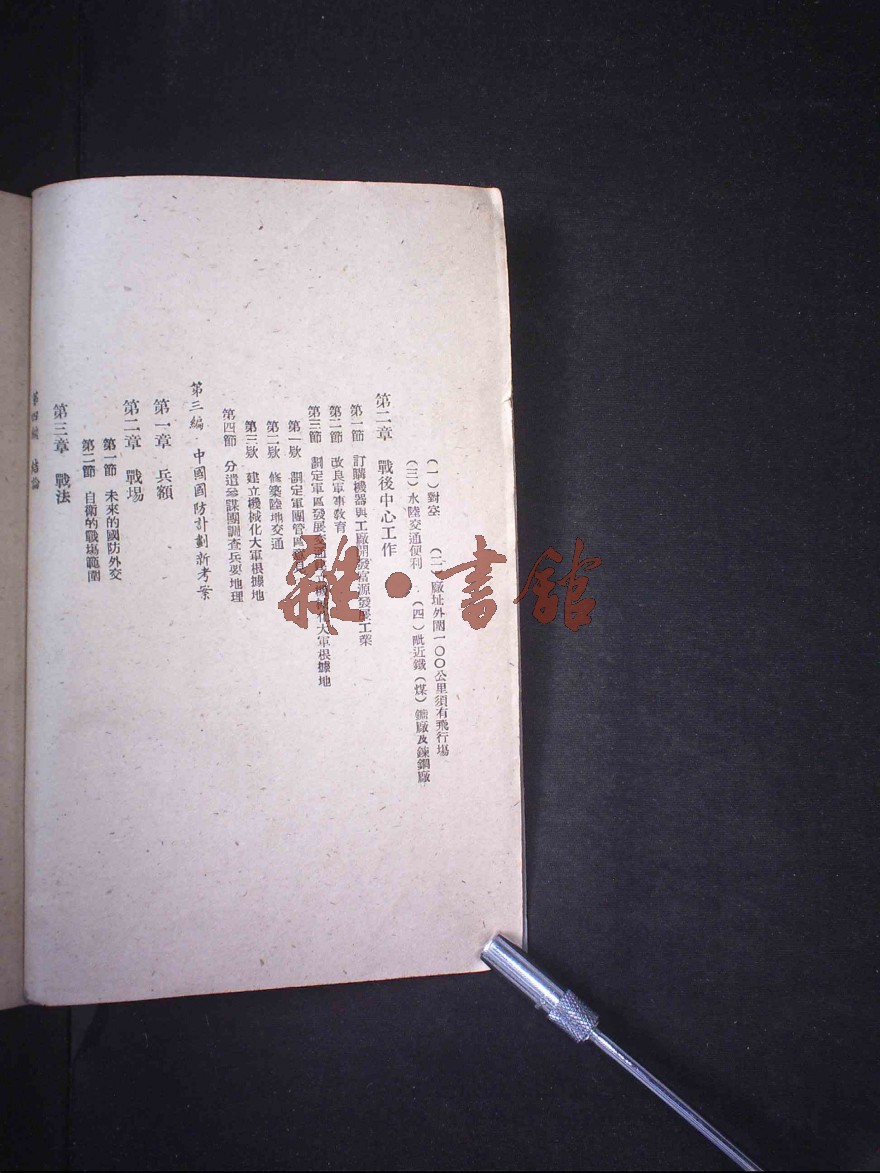 (一)對空　(二)廠址外圍一〇〇公里須有飛行場
(三)水陸交通便利　(四)毗近鐵(煤)鑛廠及鍊鋼廠
第二章　戰後中心工作
第一節　訂購機器與工廠開發富源發展工業
第二節　改良軍事教育
第三節　劃定軍區發展交通　機械化大軍根據地
第一欵　劃定軍團管區
第二欵　修築陸地交通
第三欵　建立機械化大軍根據地
第四節　分遣參謀團調查兵要地理
第三編　中國國防計劃新考案
第一章　兵額
第二章　戰場
第一節　未來的國防外交
第二節　自衛的戰場範圍
第三章　戰法
第四編　結論
雜·書館